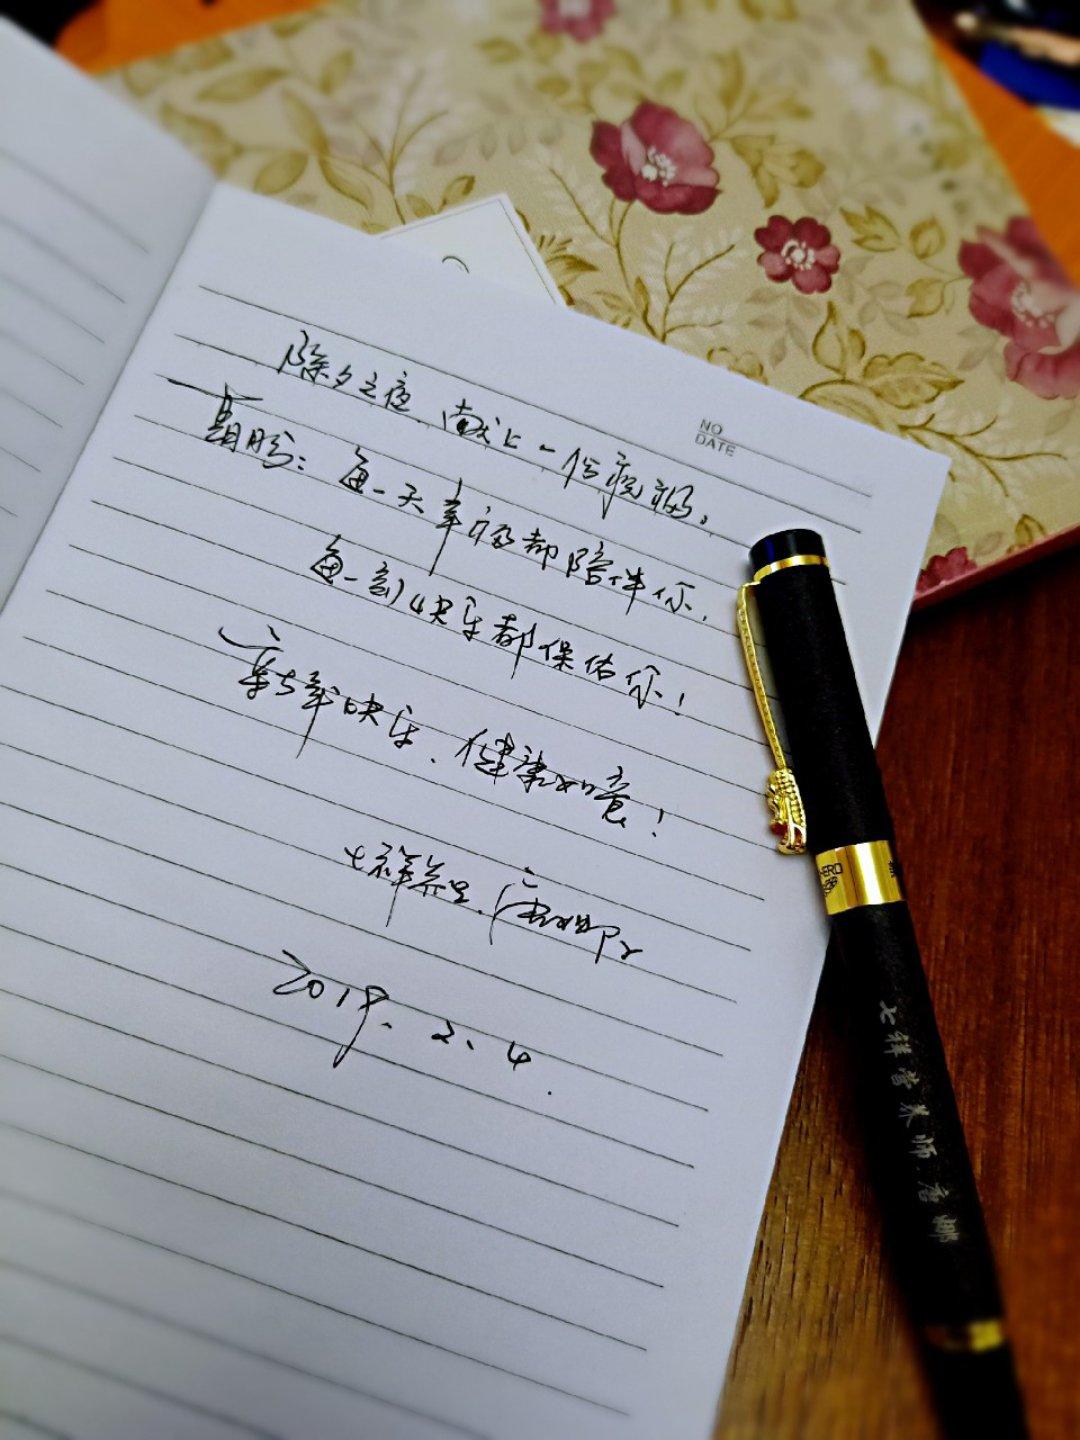 NO
DATE
除夕之夜、献上一份祝福。
期盼：每一天幸福都陪伴你，
每一刻快乐都保佑你！
新年快乐、健康如意！
七祥养生、唐娜
2019.2.4.
HERO
七祥营养师·唐娜